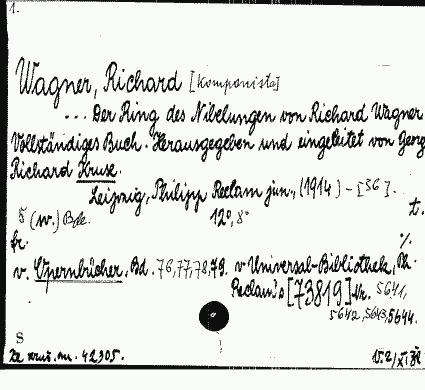 1.
Wagner, Richard [Komponista]
... Der Ring des Nibelungen von Richard Wagner
Vollständiges Buch. Herausgegeben und eingeleitet von Georg
Richard Kruse.
Leipzig, Philipp Reclam jun., (1914) - [36].
5 (w.) Bde. 12°, 8° t.
fr. %.
v. Opernbücher, Bd. 76, 77, 78, 79. v Universal-Bibliothek, Ph.
Reclam's [73819] Nr. 5641,
5642, 5643, 5644.
S
42305.